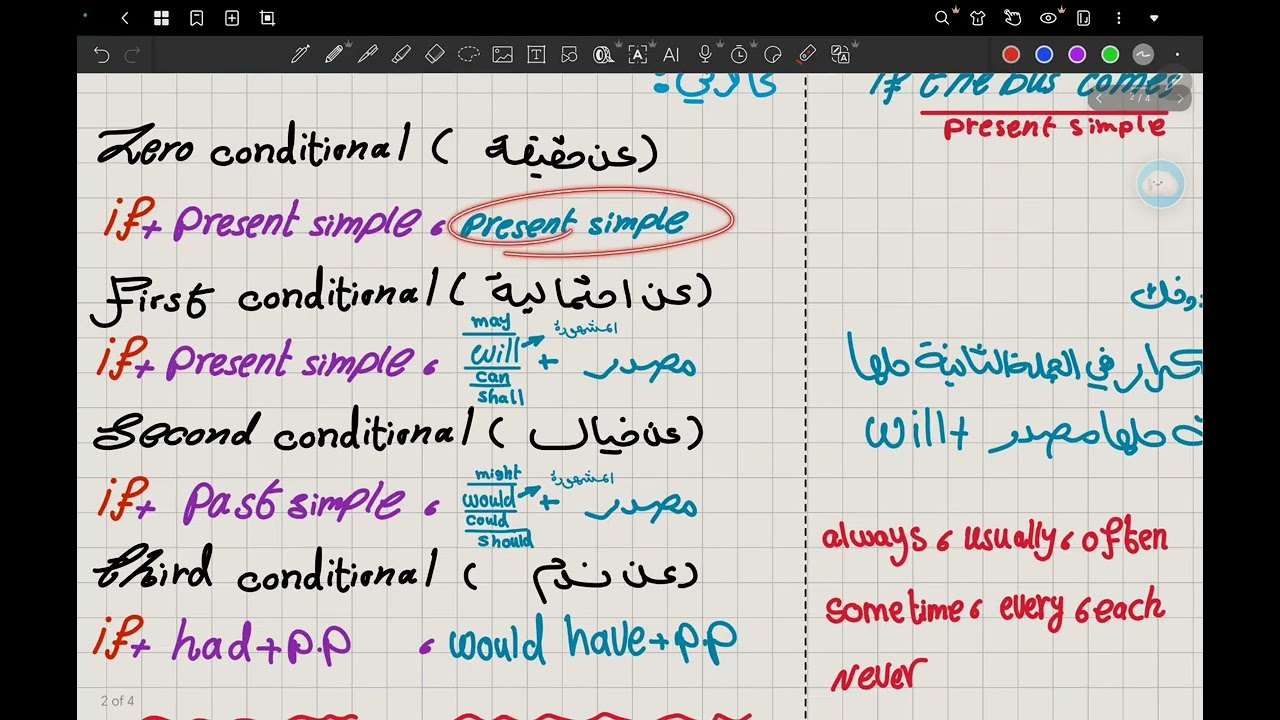 كالآتي:
Zero conditional ( عن حقيقة)
if + Present simple ، Present simple
First conditional ( عن احتمالية)
may
if + Present simple ، will + مصدر
المشهورة
can
shall
Second conditional ( عن خيال)
might
if + Past simple ، would + مصدر
المشهورة
could
should
third conditional ( عن ندم)
if + had + p.p ، would have + p.p
2 of 4
if the bus comes
2/4
present simple
في الجملة الثانية حلها
will + حلها مصدر
always ، usually ، often
sometime ، every ، each
Never